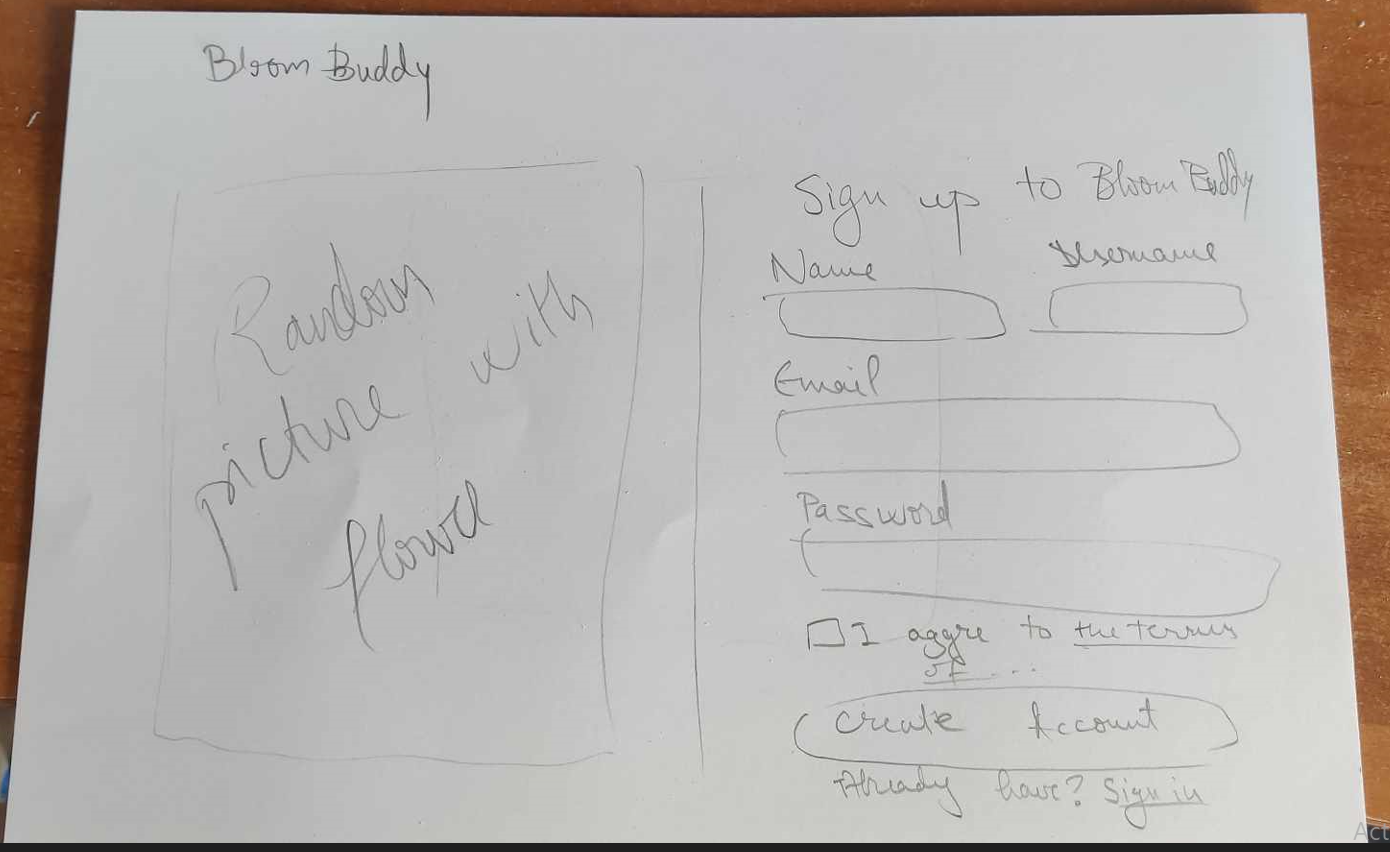 Bloom Buddy
Random
picture with
flower
Sign up to Bloom Buddy
Name
Username
Email
Password
I aggre to the terms
of ...
Create Account
Already have? Sign in
Act